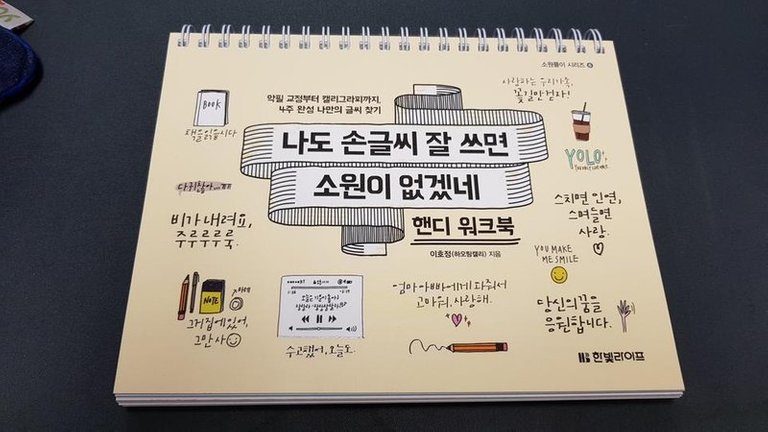 소원풀이 시리즈 4
사랑하는 우리가족,
꽃길만 걷자!
악필 교정부터 캘리그라피까지,
4주 완성 나만의 글씨 찾기
BOOK
책을 읽읍시다
나도 손글씨 잘 쓰면
소원이 없겠네
핸디 워크북
이호정(하오팅캘리) 지음
YOLO
YOU ONLY LIVE ONCE.
비가 내려요,
주루루루룩.
스치면 인연,
스며들면
사랑.
YOU MAKE
ME SMILE
NOTE
그거 집에 있어,
그만 사
수고했어, 오늘도.
엄마 아빠에게 와줘서
고마워, 사랑해.
당신의 꿈을
응원합니다.
한빛라이프